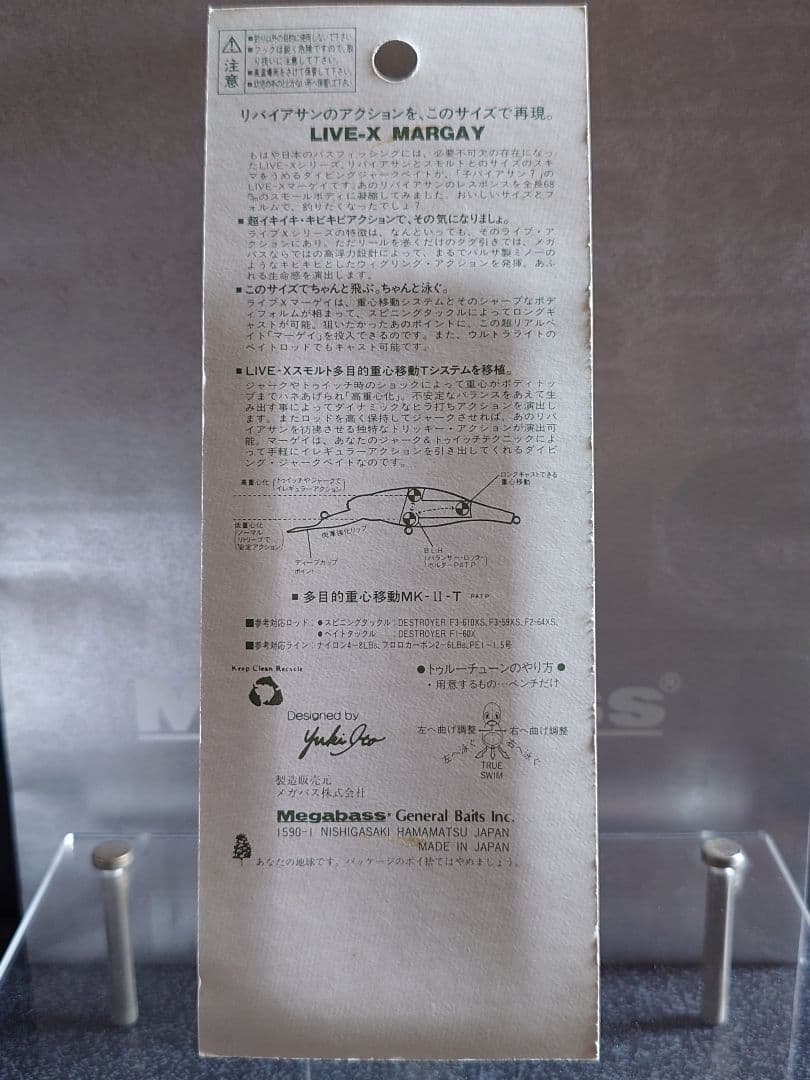 注意
■釣り以外の目的に使用しないで下さい。
■フックは鋭く危険ですので、取
り扱いに注意して下さい。
■高温場所をさけて保管して下さい。
リバイアサンのアクションを、このサイズで再現。
LIVE-X MARGAY
もはや日本のバスフィッシングには、必要不可欠の存在になっ
たLIVE-Xシリーズ。リバイアサンとスモルトとのサイズのスキ
マをうめるダイビングジャークベイトが、「子バイアサン？」の
LIVE-Xマーゲイです。あのリバイアサンのレスポンスを全長68
㎜のスモールボディに凝縮してみました。おいしいサイズとフ
ォルムで、釣りたくなったでしょ？
■超イキイキ・キビキビアクションで、その気になりましょ。
ライブXシリーズの特徴は、なんといっても、そのライブ・ア
クションにあり。ただリールを巻くだけのタダ引きでは、メガ
バスならではの高浮力設計によって、まるでバルサ製ミノーの
ようなキビキビとしたウィグリング・アクションを発揮。あふ
れる生命感を演出します。
■このサイズでちゃんと飛ぶ。ちゃんと泳ぐ。
ライブXマーゲイは、重心移動システムとそのシャープなボデ
ィフォルムが相まって、スピニングタックルによってロングキ
ャストが可能。狙いたかったあのポイントに、この超リアルベ
イト「マーゲイ」を投入できるのです。また、ウルトラライトの
ベイトロッドでもキャスト可能です。
■LIVE-Xスモルト多目的重心移動Tシステムを移植。
ジャークやトゥイッチ時のショックによって重心がボディトッ
プまでハネあげられ「高重心化」。不安定なバランスをあえて生
み出す事によってダイナミックなヒラ打ちアクションを演出し
ます。またロッドを高く保持してジャークさせれば、あのリバ
イアサンを彷彿させる独特なトリッキー・アクションが演出可
能。マーゲイは、あなたのジャーク＆トゥイッチテクニックによ
って手軽にイレギュラーアクションを引き出してくれるダイビ
ング・ジャークベイトなのです。
高重心化(トゥイッチやジャークで イレギュラーアクション)
ロングキャストできる
重心移動
低重心化
(ノーマル
リトリーブで
安定アクション)
肉厚強化リップ
ディープカップ
ポイント
B・L・H
(バランサー・ロック・
ホルダーPAT.P)
■多目的重心移動MK-II-T PAT.P
■参考対応ロッド：●スピニングタックル：DESTROYER F3-610XS, F3-59XS, F2-64XS,
●ベイトタックル：DESTROYER F1-60X
■参考対応ライン：ナイロン4〜8LBs、フロロカーボン2〜6LBs、PE1〜1.5号
Keep Clean Recycle
●トゥルーチューンのやり方●
・用意するもの…ペンチだけ
Designed by
Yuki Ito
左へ曲げ調整
右へ曲げ調整
左へ泳ぐ
右へ泳ぐ
TRUE
SWIM
製造販売元
メガバス株式会社
Megabass® General Baits Inc.
1590-1 NISHIGASAKI HAMAMATSU JAPAN
MADE IN JAPAN
あなたの地球です。パッケージのポイ捨てはやめましょう。